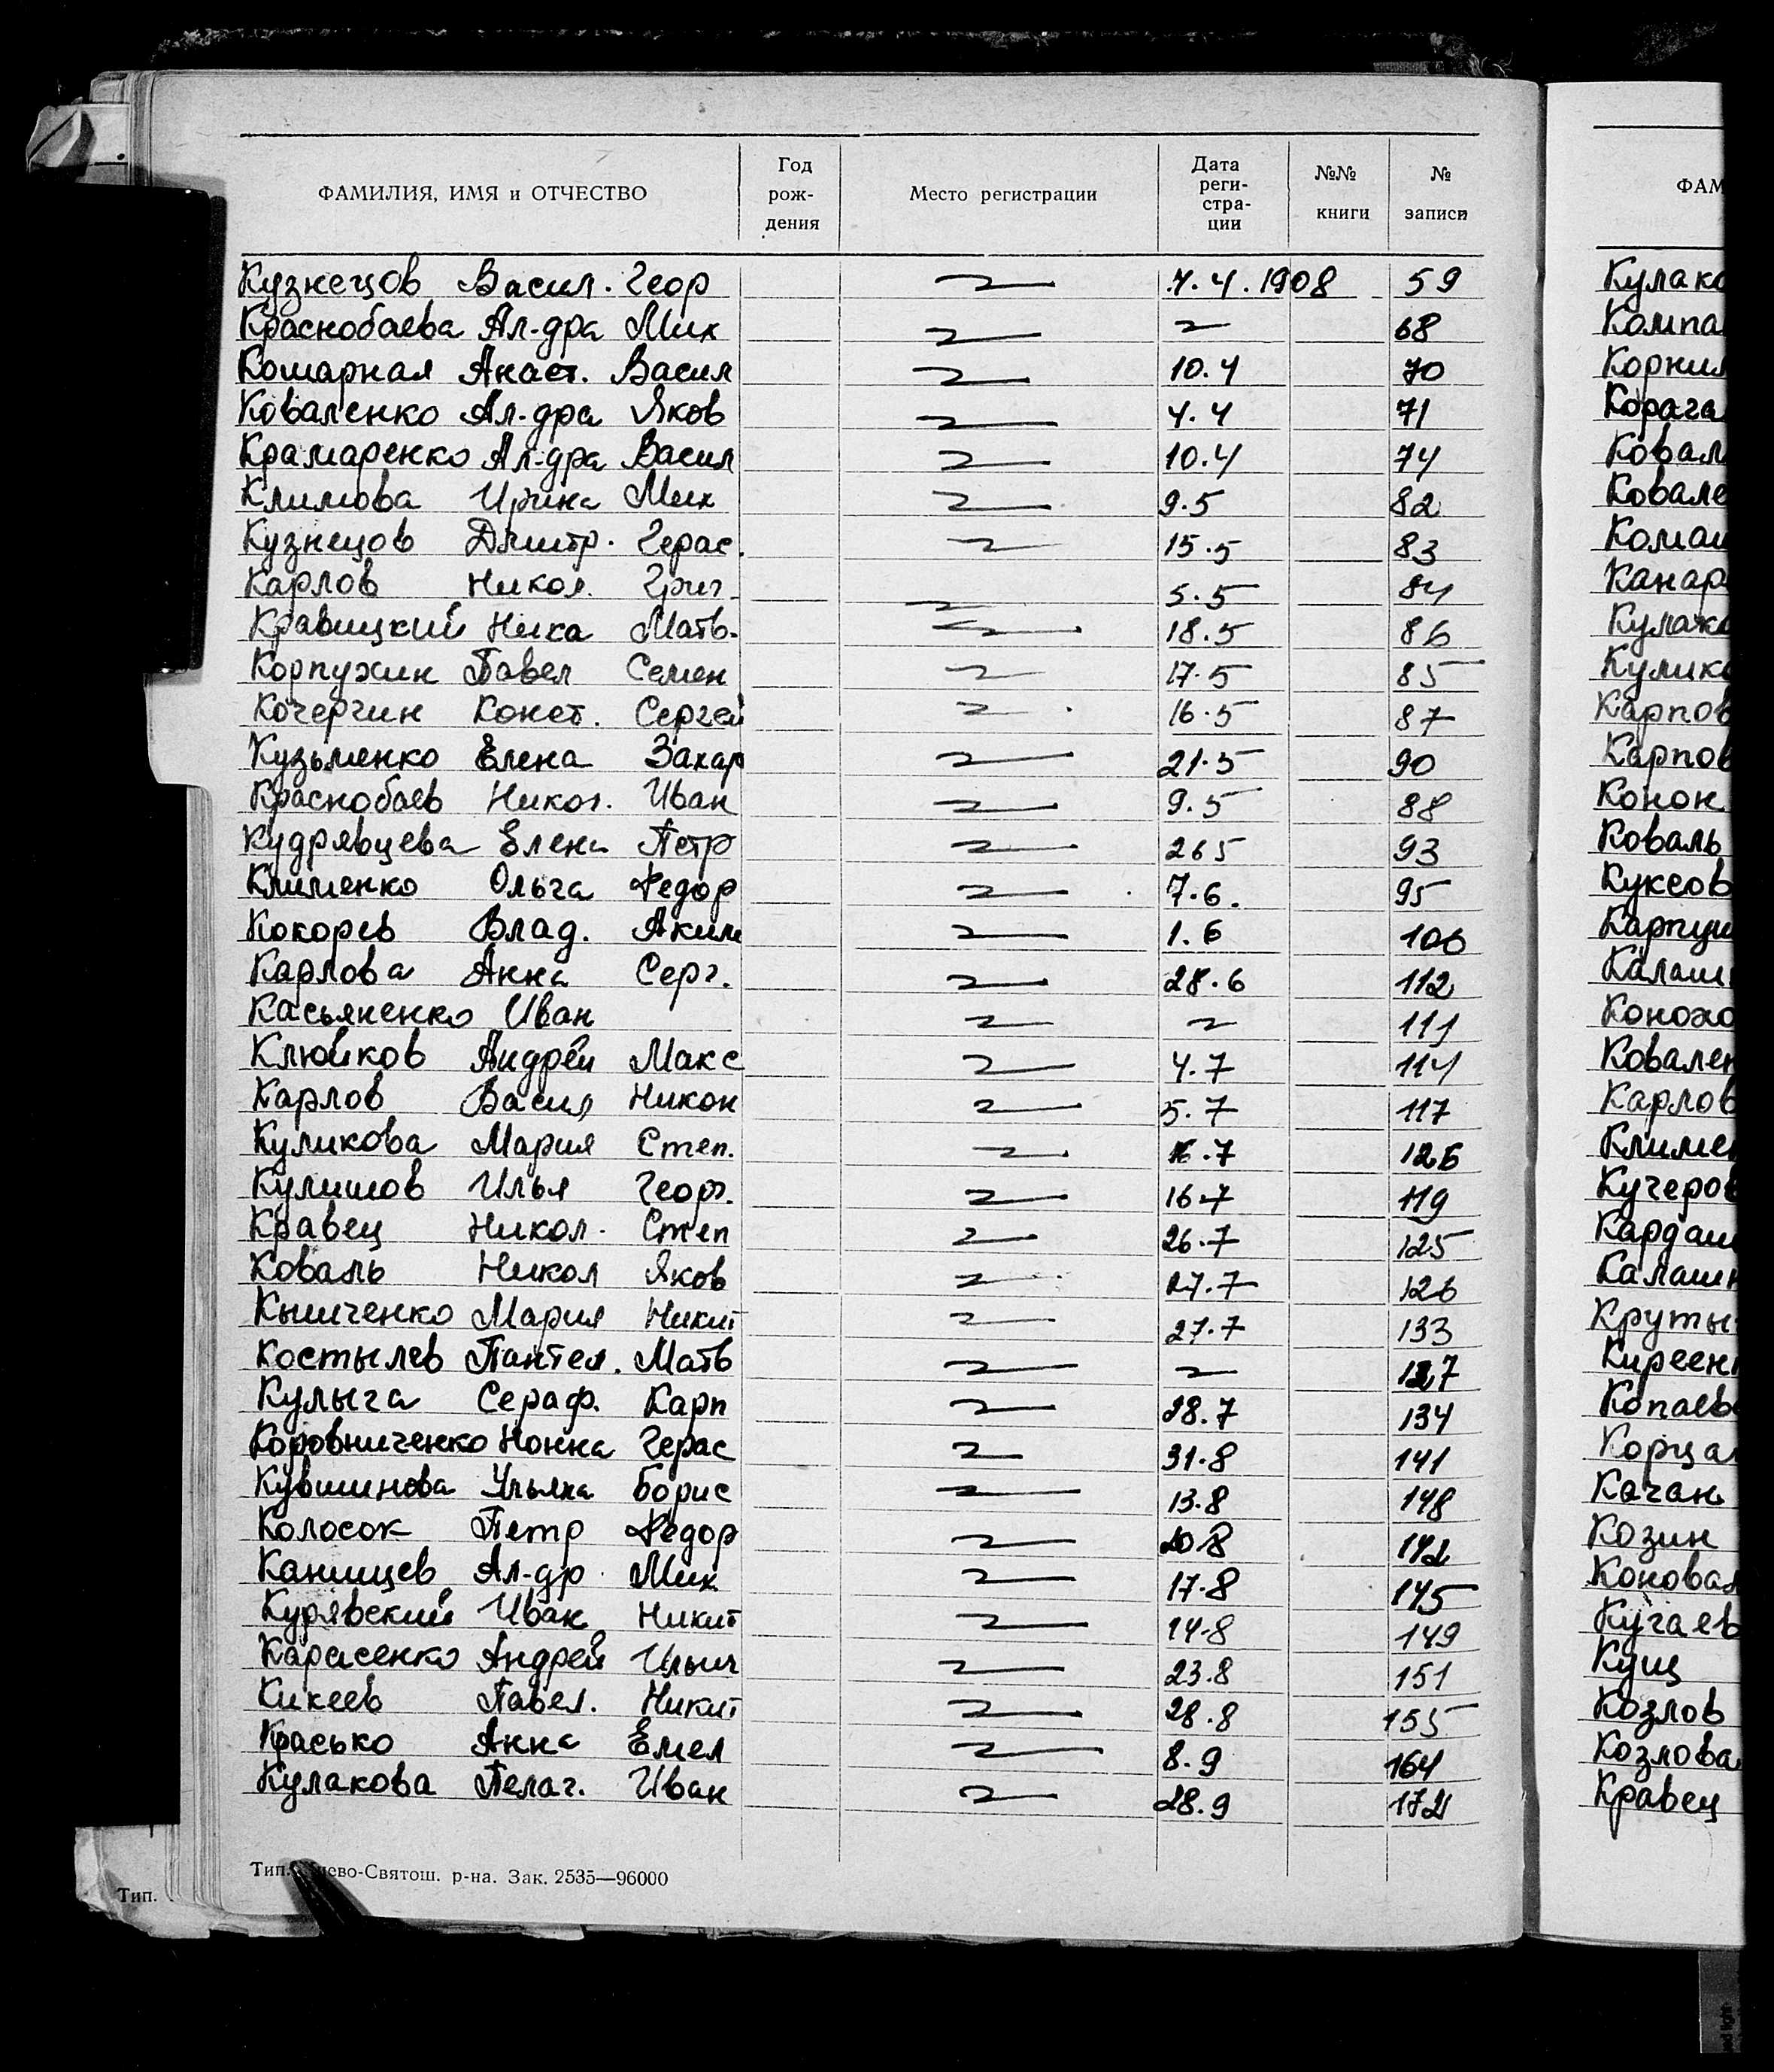 ФАМИЛИЯ, ИМЯ и ОТЧЕСТВО Год рож- дения Место регистрации Дата реги- стра- ции №№ книги № записи
Кузнецов Васил. Геор 7.4.1908 59
Краснобаева Ал-дра Мих 68
Комарная Анаст. Васил 10.4 70
Коваленко Ал-дра Яков 4.4 71
Крамаренко Ал-дра Васил 10.4 74
Климова Ирина Мих 9.5 82
Кузнецов Дмитр. Герас. 15.5 83
Карлов Никол. Григ. 5.5 84
Кравицкий Ника Матв. 18.5 86
Корпухин Павел Семен 17.5 85
Кочергин Конст. Сергей 16.5 87
Кузьменко Елена Захар 21.5 90
Краснобаев Никол. Иван 9.5 88
Кудрявцева Елена Петр 26 5 93
Клименко Ольга Федор 7.6. 95
Кокорев Влад. Аким 1.6 106
Карлова Анна Серг. 28.6 112
Касьяненко Иван 111
Клюйков Андрей Макс 4.7 114
Карлов Васил Никон 5.7 117
Куликова Мария Степ. 6.7
Кулишов Илья Георг. 16.7 119
Кравец Никол. Степ 26.7 125
Коваль Никол Яков 27.7 126
Кышченко Мария Никит 27.7 133
Костылев Пантел. Матв 127
Кулыга Сераф. Карп 28.7 134
Коровниченко Нонна Герас 31.8 141
Кувшинова Ульяна Борис 13.8 148
Колосок Петр Федор 20.8 142
Канищев Ал-др. Мих 17.8 145
Курявский Иван Никит 14.8 149
Карасенко Андрей Ильич 23.8 151
Кикеев Павел. Никит 28.8 155
Красько Анна Емел 8.9 164
Кулакова Пелаг. Иван 28.9 172
Зак. 2535—96000
Тип.
ФАМ
Кулако
Компа
Корнил
Корага
Ковал
Ковале
Кулико
Карпов
Карпов
Конон
Коваль
Куксов
Калаш
Конохо
Ковален
Карлов
Климен
Кучеров
Кардаш
Калашн
Круты
Киреен
Копаев
Корца
Качан
Козин
Коновал
Кугаев
Кущ
Козлов
Козлова
Кравец